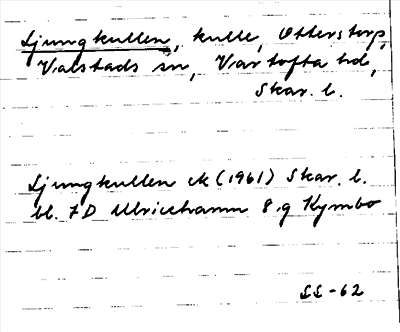 Ljungkullen, kulle, Otterstorp,
Valstads sn, Vartofta hd,
Skar. l.
Ljungkullen ek (1961) Skar. l.
bl. 7D Ulricehamn 8.g Kymbo
SS-62